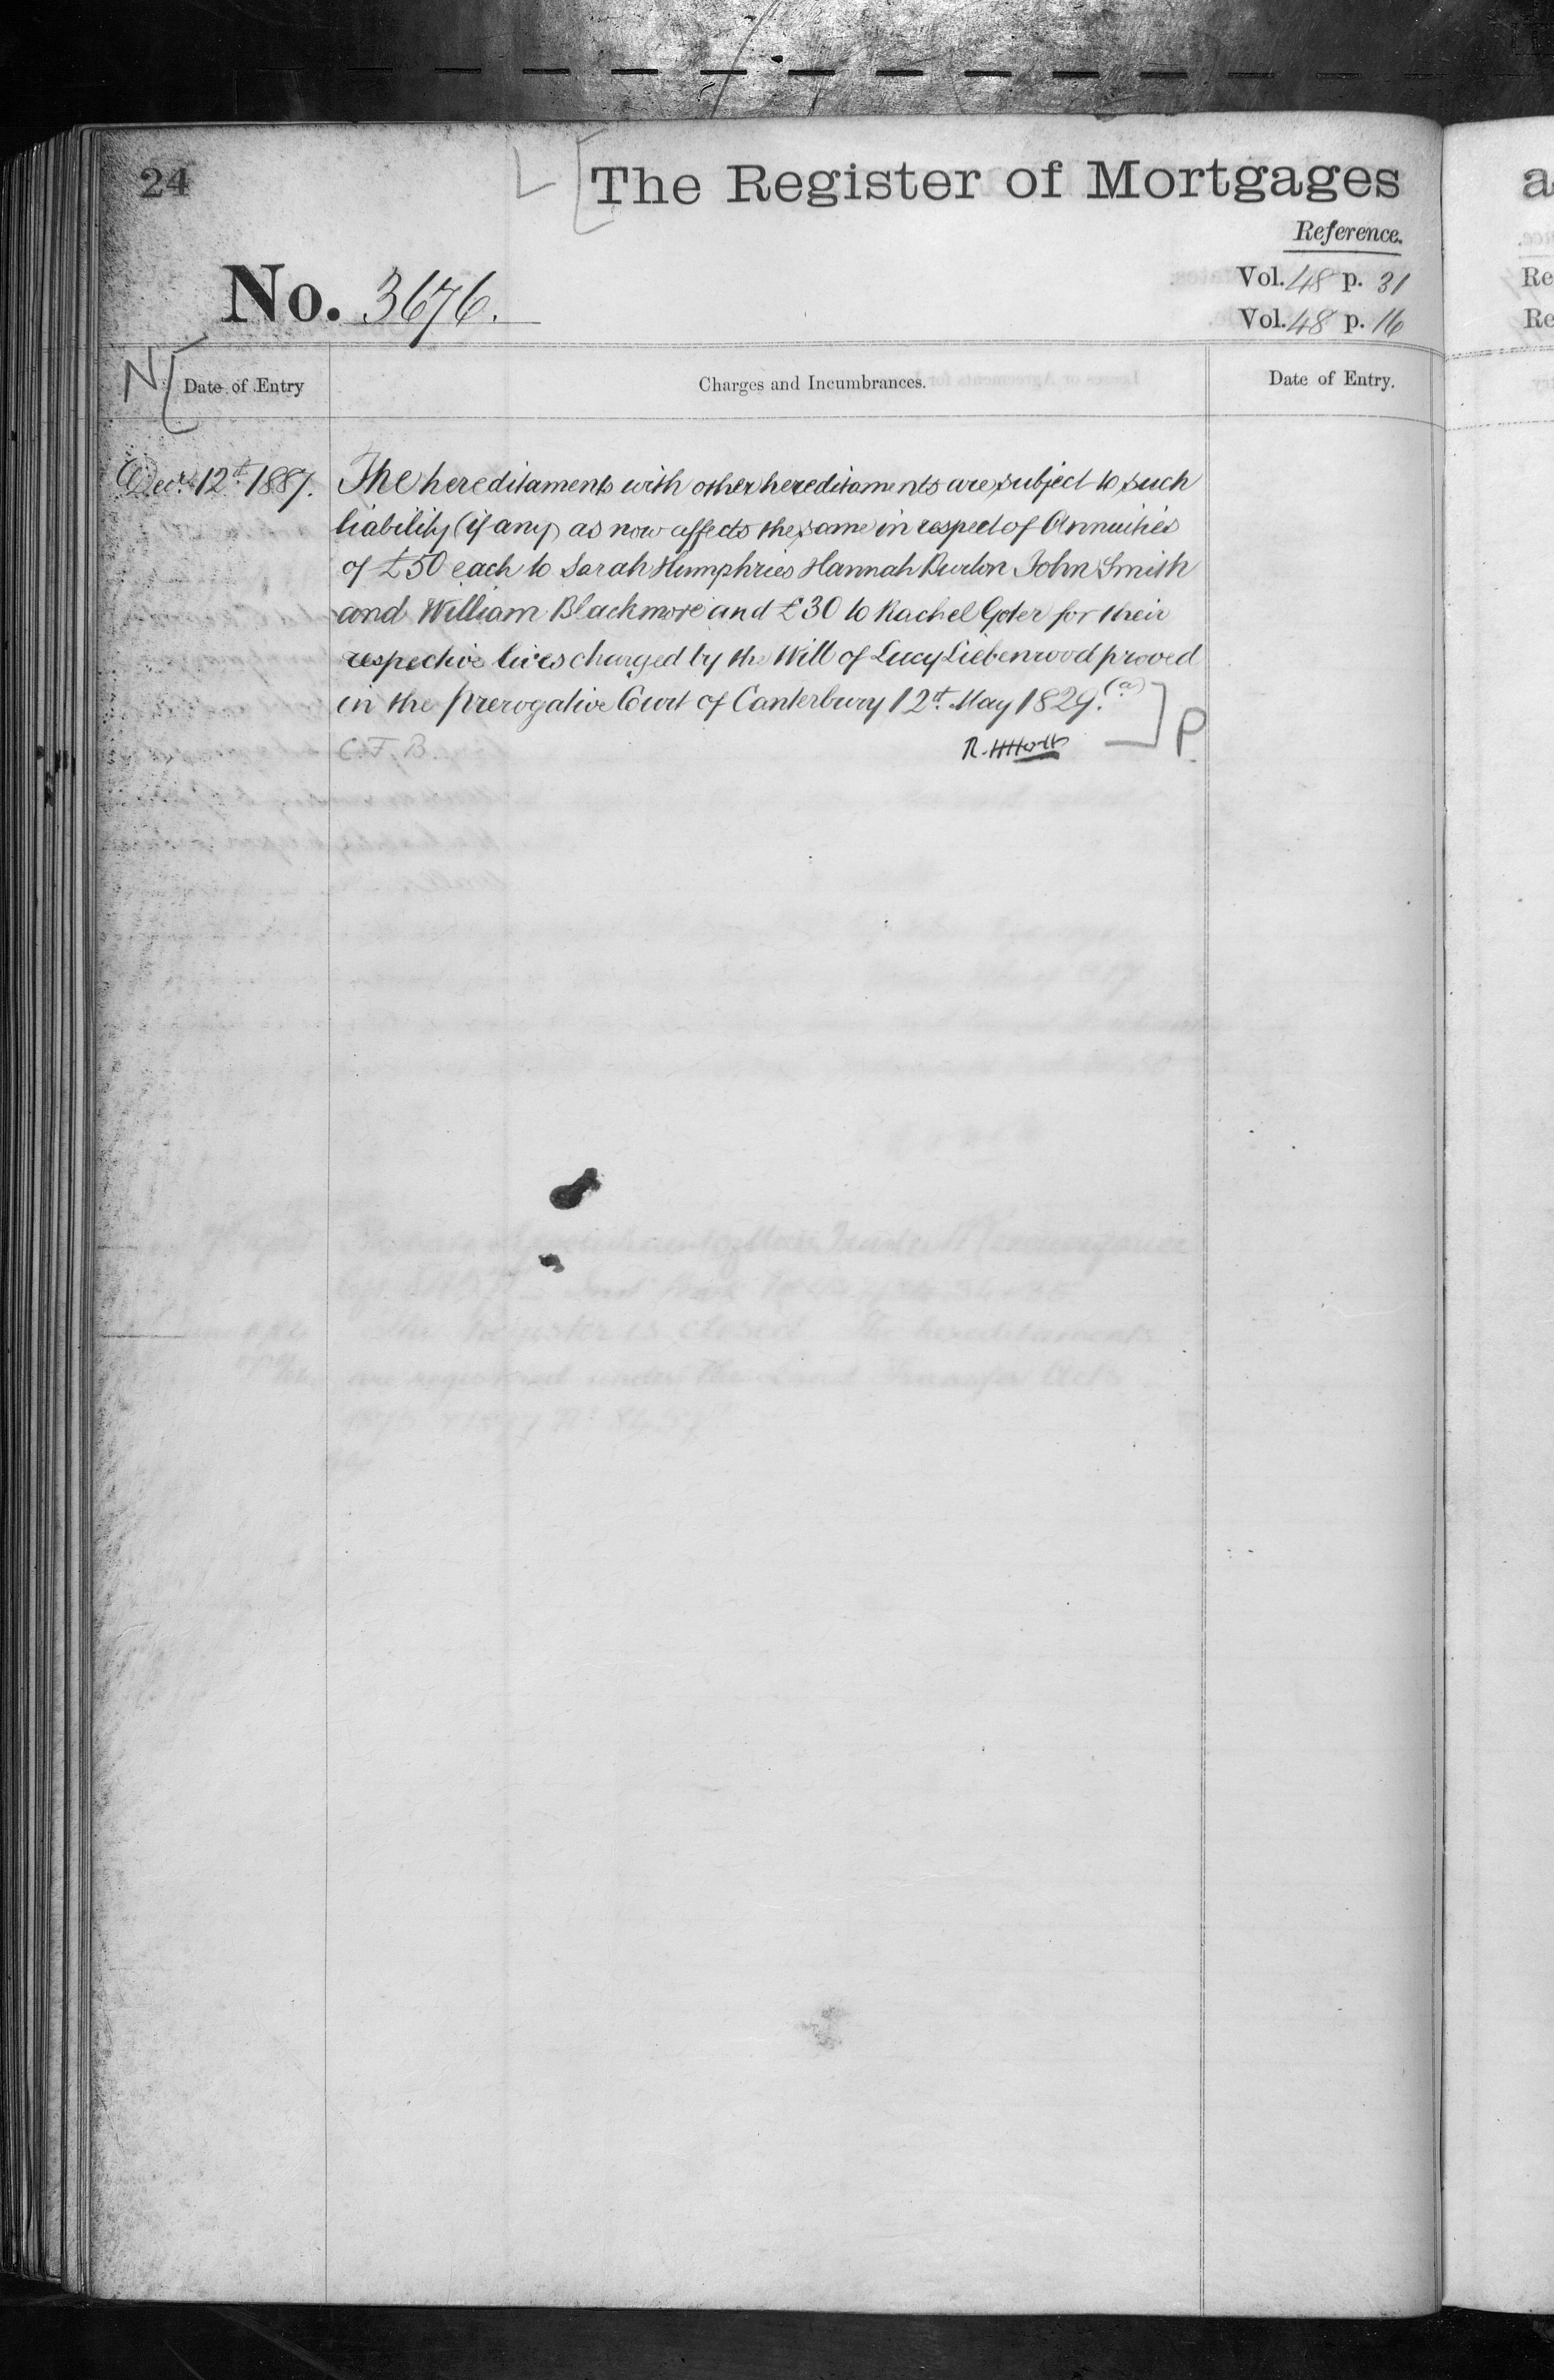 24
The Register of Mortgages
Reference.
No. 3676.
Vol. 48 p. 31
Vol. 48 p. 16
N
Date of Entry
Charges and Incumbrances.
Date of Entry.
Decr. 12th 1887.
The hereditaments with other hereditaments are subject to such
liability (if any) as now affects the same in respect of Annuities
of £50 each to Sarah Humphries Hannah Burton John Smith
and William Blackmore and £30 to Rachel Goter for their
respective lives charged by the Will of Lucy Liebenrood proved
in the Prerogative Court of Canterbury 12th May 1829. (a)
C.F.B.
R. H Holt
P.
a
Re
Re